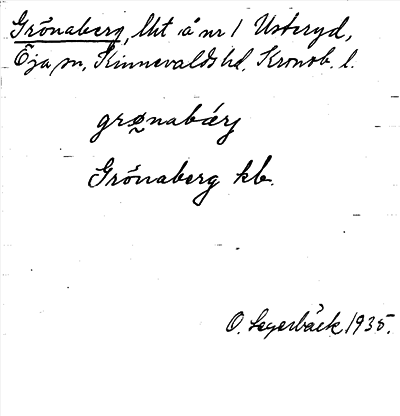 Grönaberg, lht å nr 1 Usteryd,
Öja sn, Kinnevalds hd, Kronob. l.
grønabärj
Grönaberg kb.
O. Segerbäck, 1935.